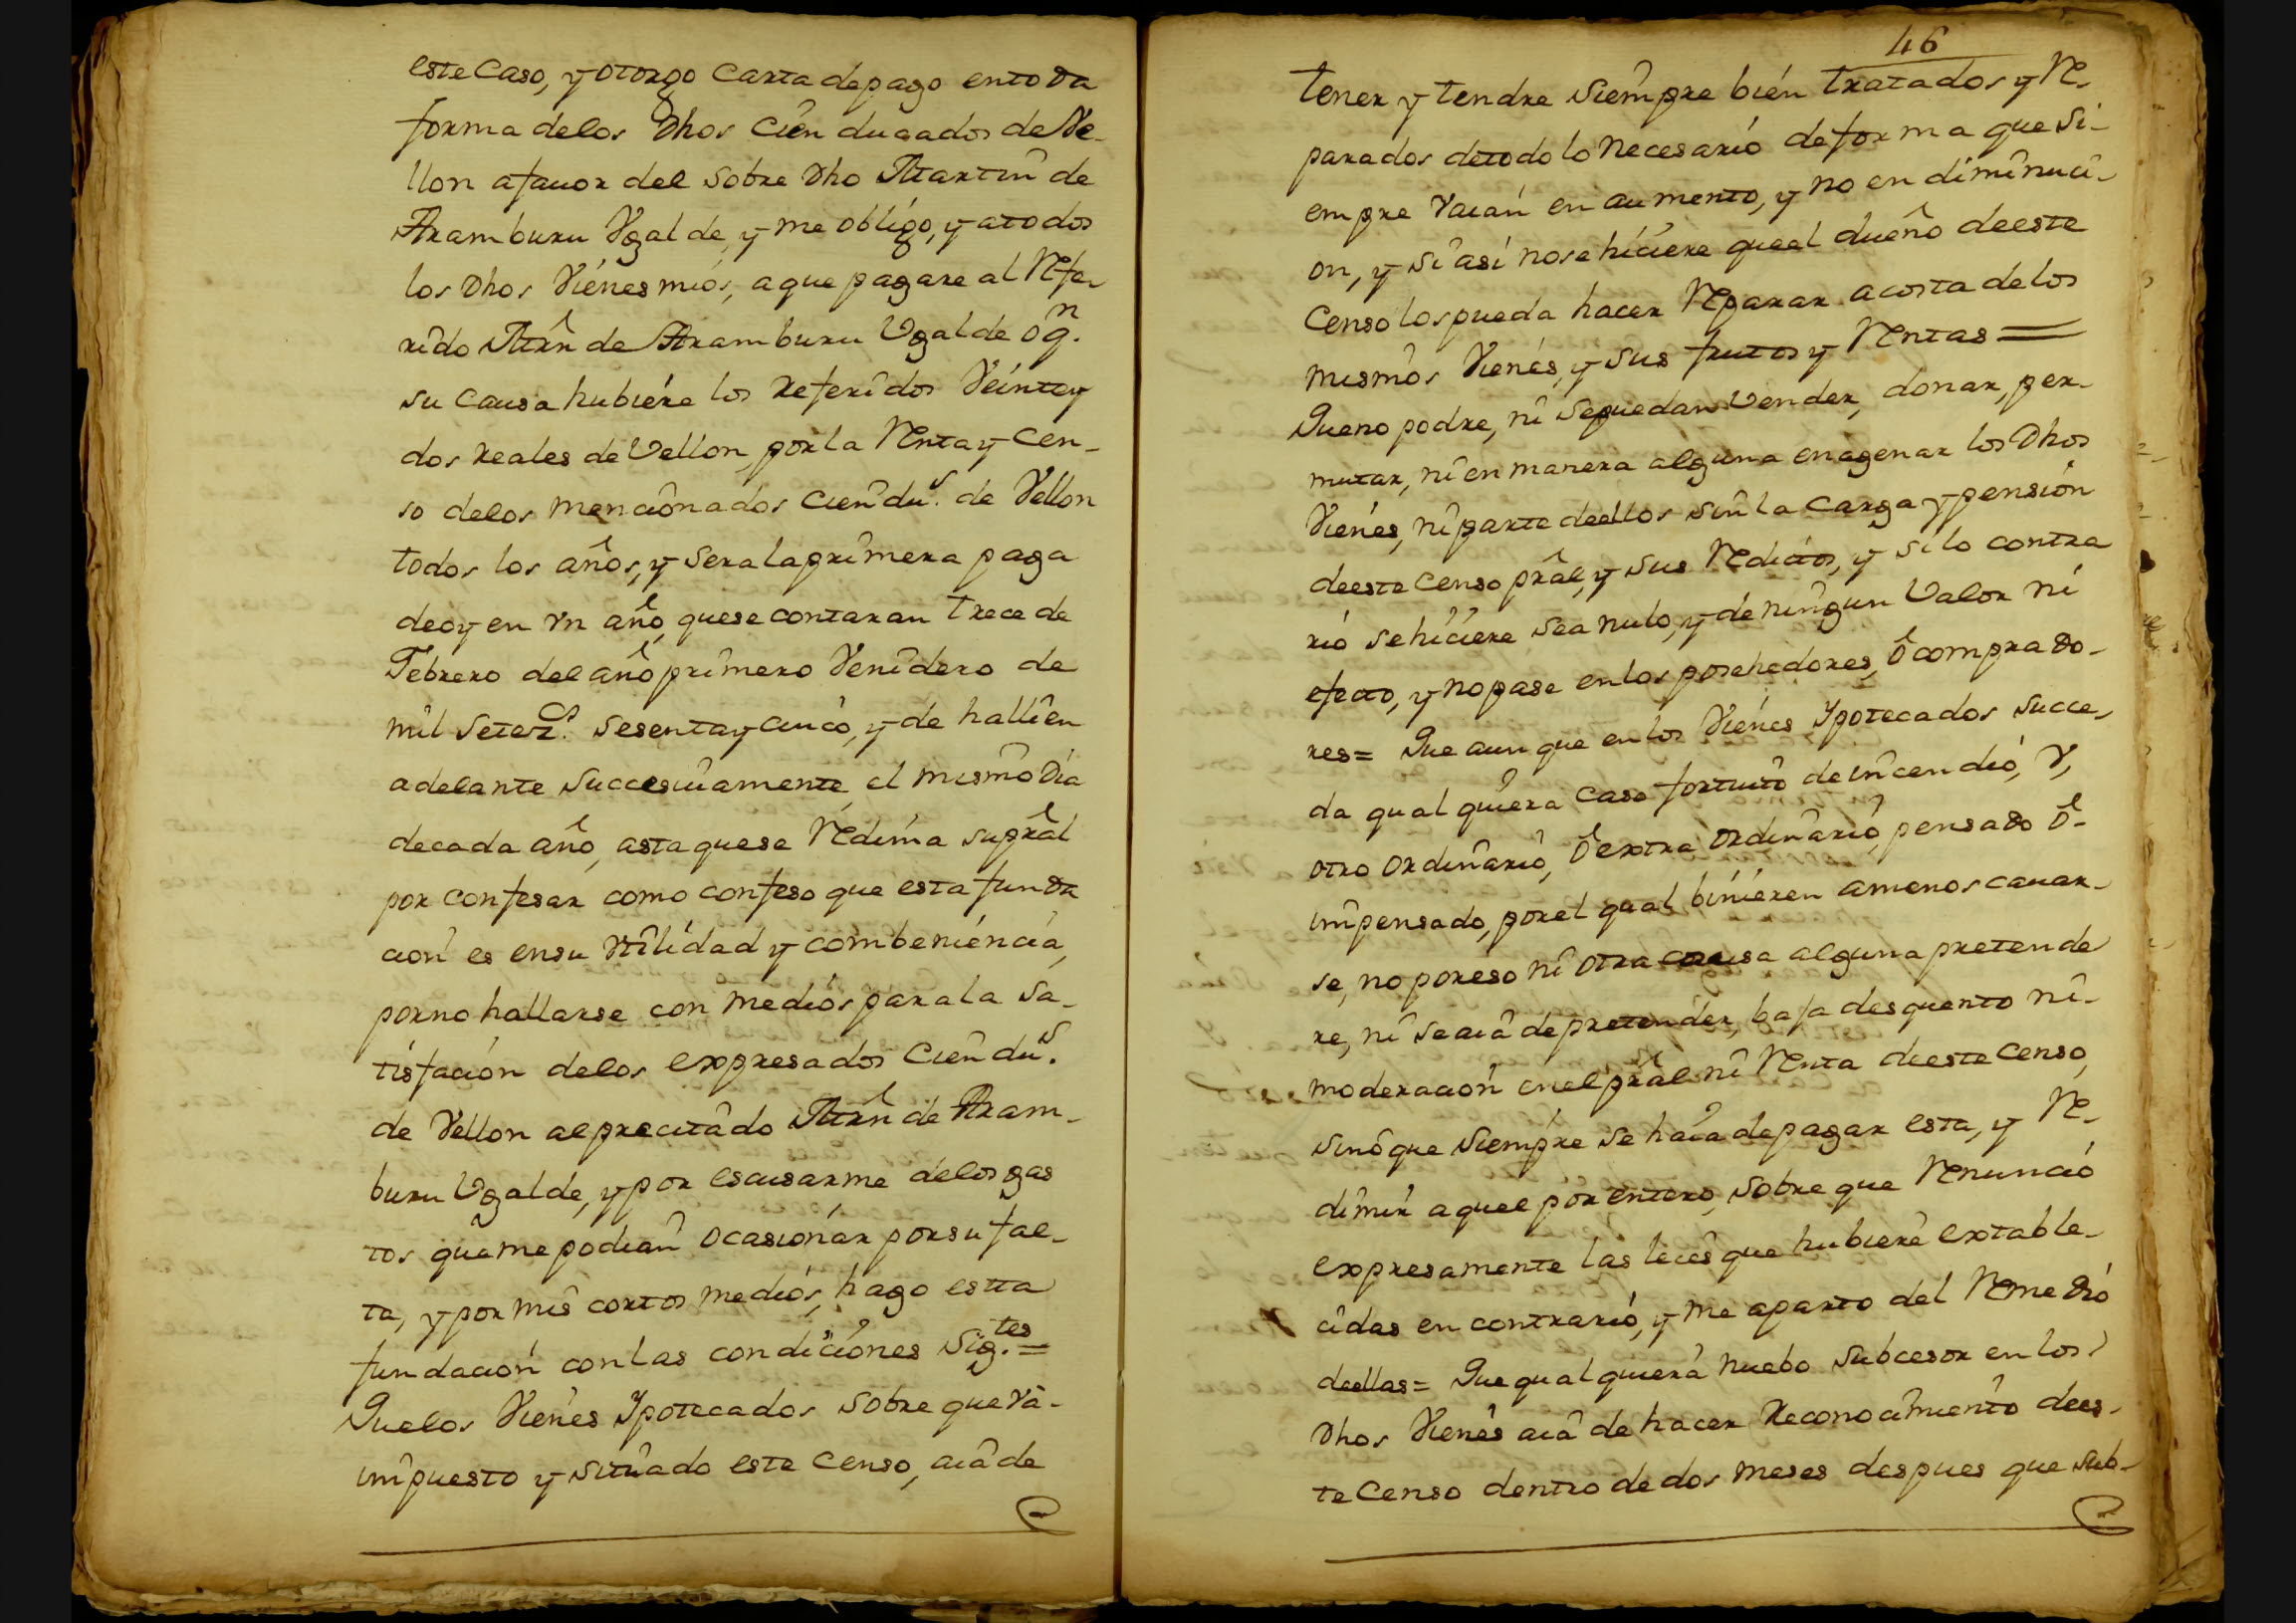 este Caso, y otorgo Carta de pago en toda
forma de los Dhos Cien ducados de Ve-
llon a fauor del sobre Dho Martin de
Aramburu Vgalde, y me obligo, y a todos
los Dhos Vienes mios, a que pagare al Refe-
rido Mrn̂ de Aramburu Vgalde o q.n
su Causa hubiere los Referidos Veinte y
dos Reales de Vellon, por la Renta y Cen-
so de los mencionados cien du.s de Vellon
todos los años, y sera la primera paga
de oy en vn año, que se contaran trece de
Febrero del año primero Venidero de
mil setez.s sesenta y cinco, y de halli en
adelante successiuamente, el mismo Dia
de cada año, asta que se Redima su prâl
por confesar como confeso que esta funda
cion es en su vtilidad y combeniencia,
por no hallarse con medios para la sa-
tisfacion de los expresados Cien du.s
de Vellon al precitado Mrn̂ de Aram-
buru Vgalde, y por escusarme de los gas
tos que me podian ocasionar por su fal-
ta, y por mis cortos medios, hago estta
fundacion con las condiciones sig.tes =
Que los Vienes Ypotecados sobre que va-
impuesto y situado este Censo, aia de
46
tener y tendre siempre bien tratados y Re-
parados de todo lo necesario de forma que si-
empre vaian en aumento, y no en diminuci-
on, y si asi no se hiciere que el dueño de este
Censo los pueda hacer Reparar a costa de los
mismos Vienes, y sus frutos y Rentas =
Que no podre, ni se puedan Vender, donar, per-
mutar, ni en manera alguna enagenar los Dhos
Vienes, ni parte de ellos sin la Carga y pension
de este Censo prâl, y sus Reditos, y si lo contra
rio se hiciere sea nulo, y de ningun Valor ni
efecto, y no pase en los posehedores, ô comprado-
res = Que aun que en los Vienes Ypotecados succe-
da qual quiera caso fortuito de incendio, V,
otro ordinario, ô extra ordinario, pensado ô-
impensado, por el qual binieren a menos cauar-
se, no por eso ni otra causa alguna pretende
re, ni se aia de pretender, baja desquento ni-
moderacion en el prâl ni Renta de este Censo,
sino que siempre se haia de pagar esta, y Re-
dimir aquel por entero, sobre que Renuncio
expresamente las leies que hubiere extable-
cidas en contrario, y me aparto del Remedio
de ellas = Que qual quiera nuebo subcesor en los
Dhos Vienes aia de hacer Reconocimiento de es-
te Censo dentro de dos meses despues que sub-